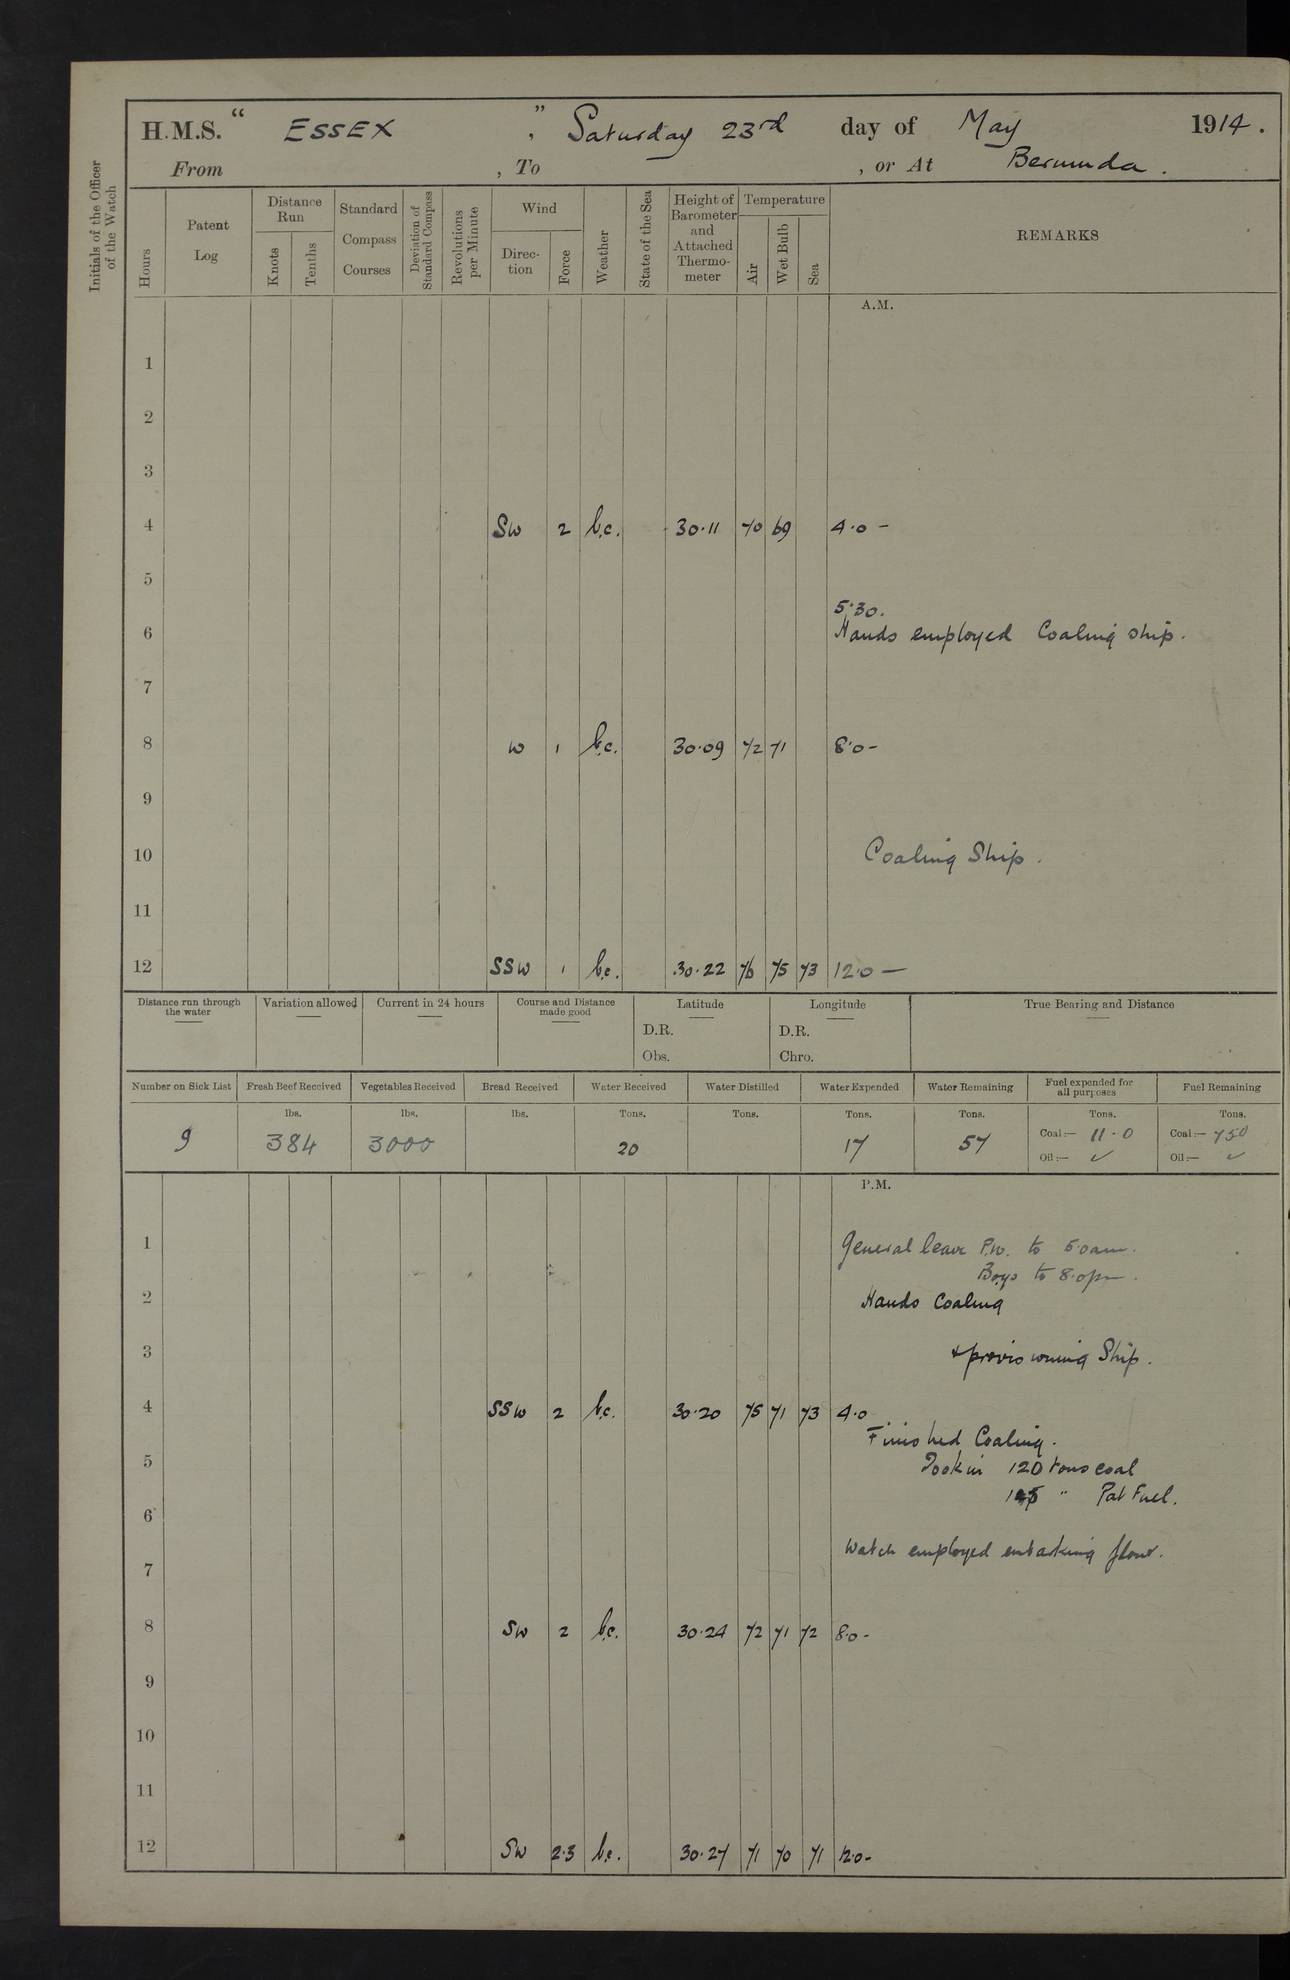 H.M.S. " ESSEX ", Saturday 23rd day of May 1914.
From , To , or At Bermuda.
Initials of the Officer of the Watch
Hours
Patent Log
Distance Run
Knots
Tenths
Standard Compass Courses
Deviation of Standard Compass
Revolutions per Minute
Wind
Direction
Force
Weather
State of the Sea
Height of Barometer and Attached Thermometer
Temperature
Air
Wet Bulb
Sea
REMARKS
A.M.
1
2
3
4 SW 2 b.c. 30.11 70 69 4.0 -
5
5.30.
6 Hands employed Coaling ship.
7
8 W 1 b.c. 30.09 72 71 8.0 -
9
10 Coaling Ship.
11
12 SSW 1 b.c. 30.22 76 75 73 12.0 —
Distance run through the water
Variation allowed
Current in 24 hours
Course and Distance made good
Latitude
D.R.
Obs.
Longitude
D.R.
Chro.
True Bearing and Distance
Number on Sick List Fresh Beef Received Vegetables Received Bread Received Water Received Water Distilled Water Expended Water Remaining Fuel expended for all purposes Fuel Remaining
lbs. lbs. lbs. Tons. Tons. Tons. Tons. Tons. Tons.
9 384 3000 20 17 57 Coal:— 11.0 Coal:— 750
Oil:— ✓ Oil:— ✓
P.M.
1 General leave P.W. to 5.0am.
Boys to 8.0pm.
2 Hands Coaling
3 + provisioning Ship.
4 SSW 2 b.c. 30.20 75 71 73 4.0
Finished Coaling.
5 Took in 120 tons coal
" Pat Fuel.
6
Watch employed embarking flour.
7
8 SW 2 b.c. 30.24 72 71 72 8.0 -
9
10
11
12 SW 2.3 b.c. 30.27 71 70 71 12.0 -